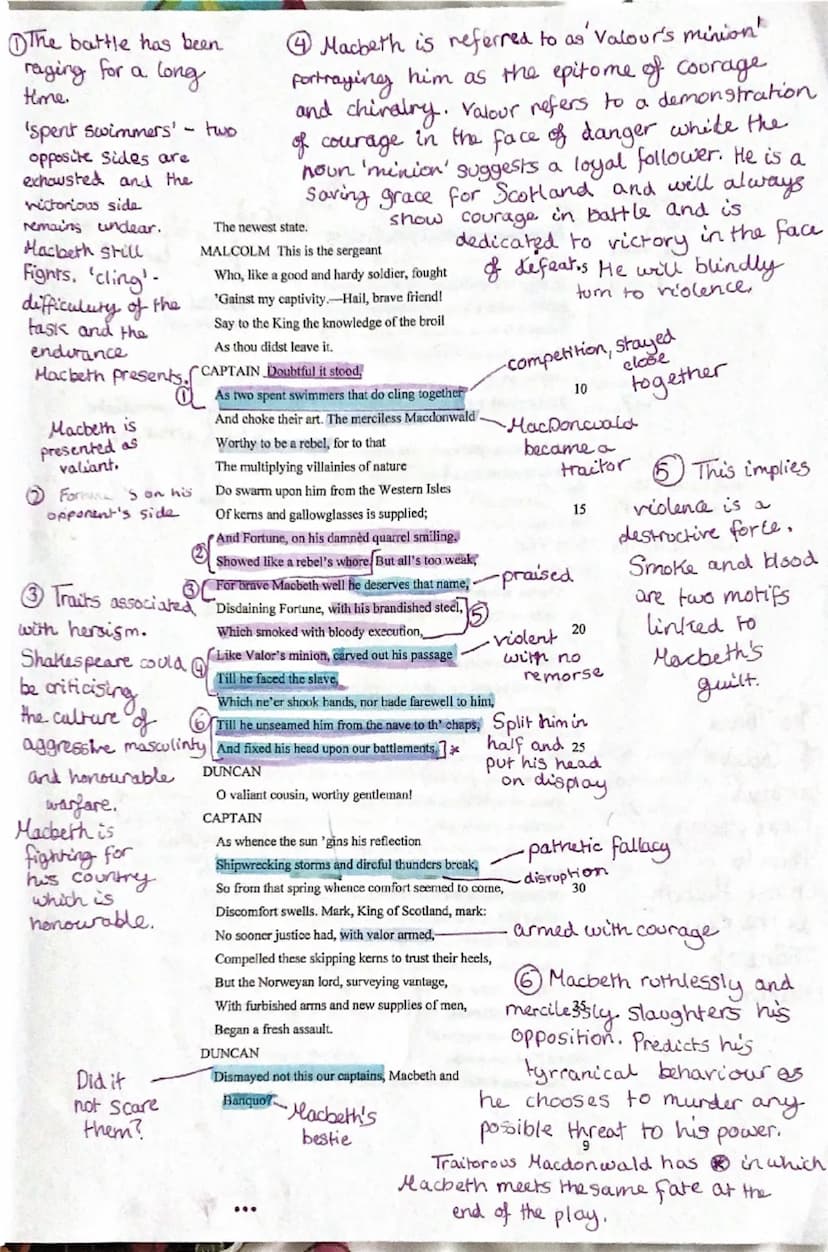 ①The battle has been
raging for a long
time.
'spent swimmers' - two
opposite sides are
exhausted and the
victorious side
remains unclear.
Macbeth still
fights. 'cling' -
difficulty of the
task and the
endurance
Macbeth presents.
Macbeth is
presented as
valiant.
② Fortune 's on his
opponent's side
③ Traits associated
with heroism.
Shakespeare could
be criticising
the culture of
aggressive masculinity
and honourable
warfare.
Macbeth is
fighting for
his country
which is
honourable.
Did it
not scare
them?
④ Macbeth is referred to as 'Valour's minion'
portraying him as the epitome of courage
and chivalry. Valour refers to a demonstration
of courage in the face of danger while the
noun 'minion' suggests a loyal follower. He is a
saving grace for Scotland and will always
show courage in battle and is
dedicated to victory in the face
of defeat. He will blindly
turn to violence.
The newest state.
MALCOLM This is the sergeant
Who, like a good and hardy soldier, fought
'Gainst my captivity.—Hail, brave friend!
Say to the King the knowledge of the broil
As thou didst leave it.
CAPTAIN Doubtful it stood,
① As two spent swimmers that do cling together 10
And choke their art. The merciless Macdonwald
Worthy to be a rebel, for to that
The multiplying villainies of nature
Do swarm upon him from the Western Isles 15
Of kerns and gallowglasses is supplied;
② And Fortune, on his damnèd quarrel smiling,
Showed like a rebel's whore. But all's too weak,
③ For brave Macbeth well he deserves that name,
Disdaining Fortune, with his brandished steel, ⑤
Which smoked with bloody execution, 20
④ Like Valor's minion, carved out his passage
Till he faced the slave,
Which ne'er shook hands, nor bade farewell to him,
⑥ Till he unseamed him from the nave to th' chaps,
And fixed his head upon our battlements. * 25
DUNCAN
O valiant cousin, worthy gentleman!
CAPTAIN
As whence the sun 'gins his reflection
Shipwrecking storms and direful thunders break,
So from that spring whence comfort seemed to come, 30
Discomfort swells. Mark, King of Scotland, mark:
No sooner justice had, with valor armed,
Compelled these skipping kerns to trust their heels,
But the Norweyan lord, surveying vantage,
With furbished arms and new supplies of men, 35
Began a fresh assault.
DUNCAN
Dismayed not this our captains, Macbeth and
Banquo?
competition, stayed
close
together
MacDonwald
became a
traitor
praised
violent
with no
remorse
Split him in
half and
put his head
on display
pathetic fallacy
disruption
armed with courage
Macbeth's
bestie
⑤ This implies
violence is a
destructive force.
Smoke and blood
are two motifs
linked to
Macbeth's
guilt.
⑥ Macbeth ruthlessly and
mercilessly slaughters his
opposition. Predicts his
tyrranical behaviour as
he chooses to murder any
possible threat to his power.
9
Traitorous Macdonwald has in which
Macbeth meets the same fate at the
end of the play.
•••